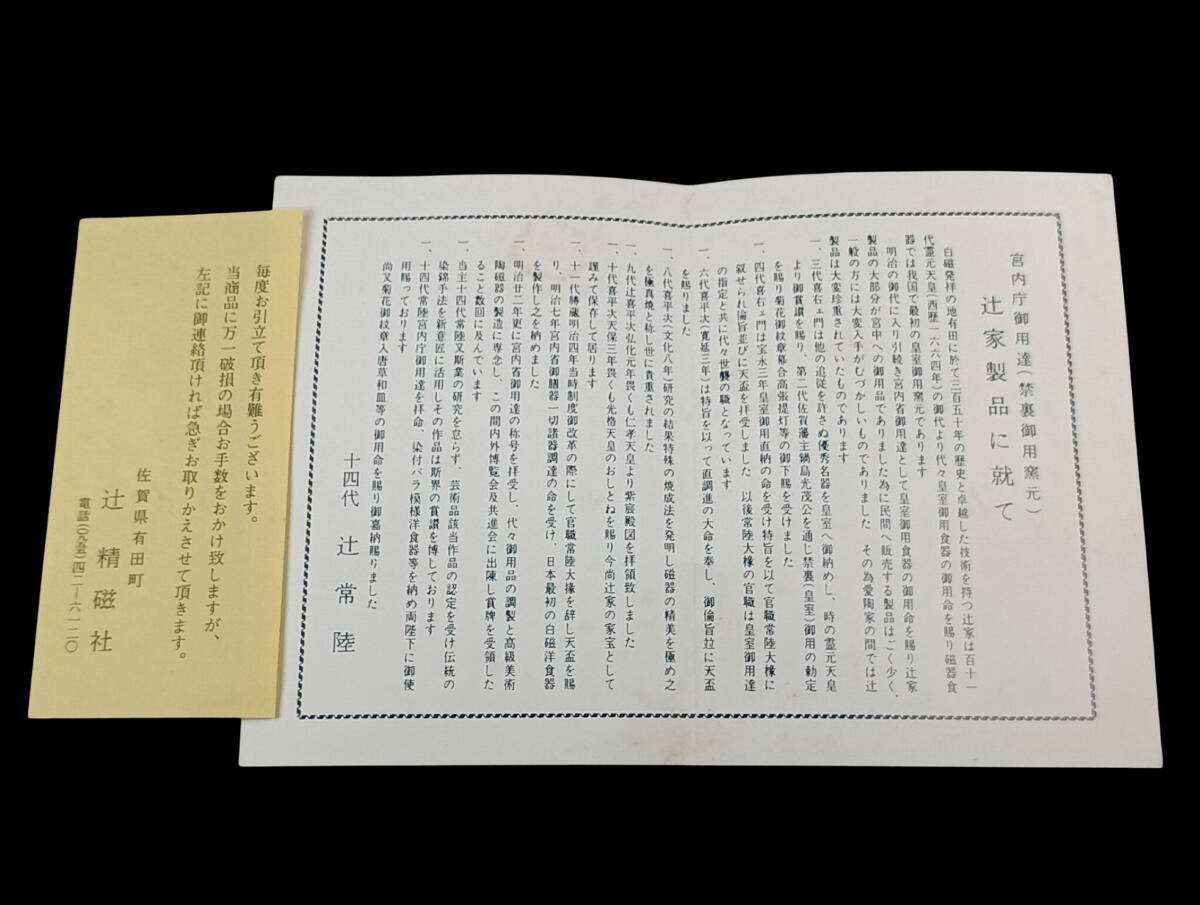 宮内庁御用達(禁裏御用窯元)
辻家製品に就て
白磁発祥の地有田に於て三百五十年の歴史と卓越した技術を持つ辻家は百十一
代霊元天皇(西歴一六六四年)の御代より代々皇室御用食器の御用命を賜り磁器食
器では我国で最初の皇室御用窯元であります
明治の御代に入り引続き宮内省御用達として皇室御用食器の御用命を賜り辻家
製品の大部分が宮中への御用品でありました為に民間へ販売する製品はごく少く、
一般の方には大変入手がむづかしいものでありました その為愛陶家の間では辻
製品は大変珍重されていたものであります
一、三代喜右ェ門は他の追従を許さぬ優秀名器を皇室へ御納めし、時の霊元天皇
より御賞讃を賜り、第二代佐賀藩主鍋島光茂公を通じ禁裏(皇室)御用の勅定
を賜り菊花御紋章幕合高張提灯等の御下賜を受けました
一、四代喜右ェ門は宝永三年皇室御用直納の命を受け特旨を以て官職常陸大掾に
叙せられ倫旨並びに天盃を拝受しました 以後常陸大掾の官職は皇室御用達
の指定と共に代々世襲の職となっています
一、六代喜平次(寛延三年)は特旨を以って直調進の大命を奉し、御倫旨竝に天盃
を賜りました
一、八代喜平次(文化八年)研究の結果特殊の焼成法を発明し磁器の精美を極め之
を極真焼と称し世に貴重されました
一、九代辻喜平次弘化元年畏くも仁孝天皇より紫宸殿図を拝領致しました
一、十代喜平次天保三年畏くも光格天皇のおしとねを賜り今尚辻家の家宝として
謹みて保存して居ります
一、十一代勝蔵明治四年当時制度御改革の際にして官職常陸大掾を辞し天盃を賜
り、明治七年宮内省御膳器一切諸器調達の命を受け、日本最初の白磁洋食器
を製作し之を納めました
一、明治廿二年更に宮内省御用達の称号を拝受し、代々御用品の調製と高級美術
陶磁器の製造に専念し、この間内外博覧会及共進会に出陳し賞牌を受領した
ること数回に及んでいます
一、当主十四代常陸又斯業の研究を怠らず、芸術品該当作品の認定を受け伝統の
染錦手法を新意匠に活用しその作品は斯界の賞讃を博しております
一、十四代常陸宮内庁御用達を拝命、染付バラ模様洋食器等を納め両陛下に御使
用賜っております
尚又菊花御紋章入唐草和皿等の御用命を賜り御嘉納賜りました
十四代 辻 常陸
毎度お引立て頂き有難うございます。
当商品に万一破損の場合お手数をおかけ致しますが、
左記に御連絡頂ければ急ぎお取りかえさせて頂きます。
佐賀県有田町
辻 精磁社
電話(〇九五五)四二―六一二〇